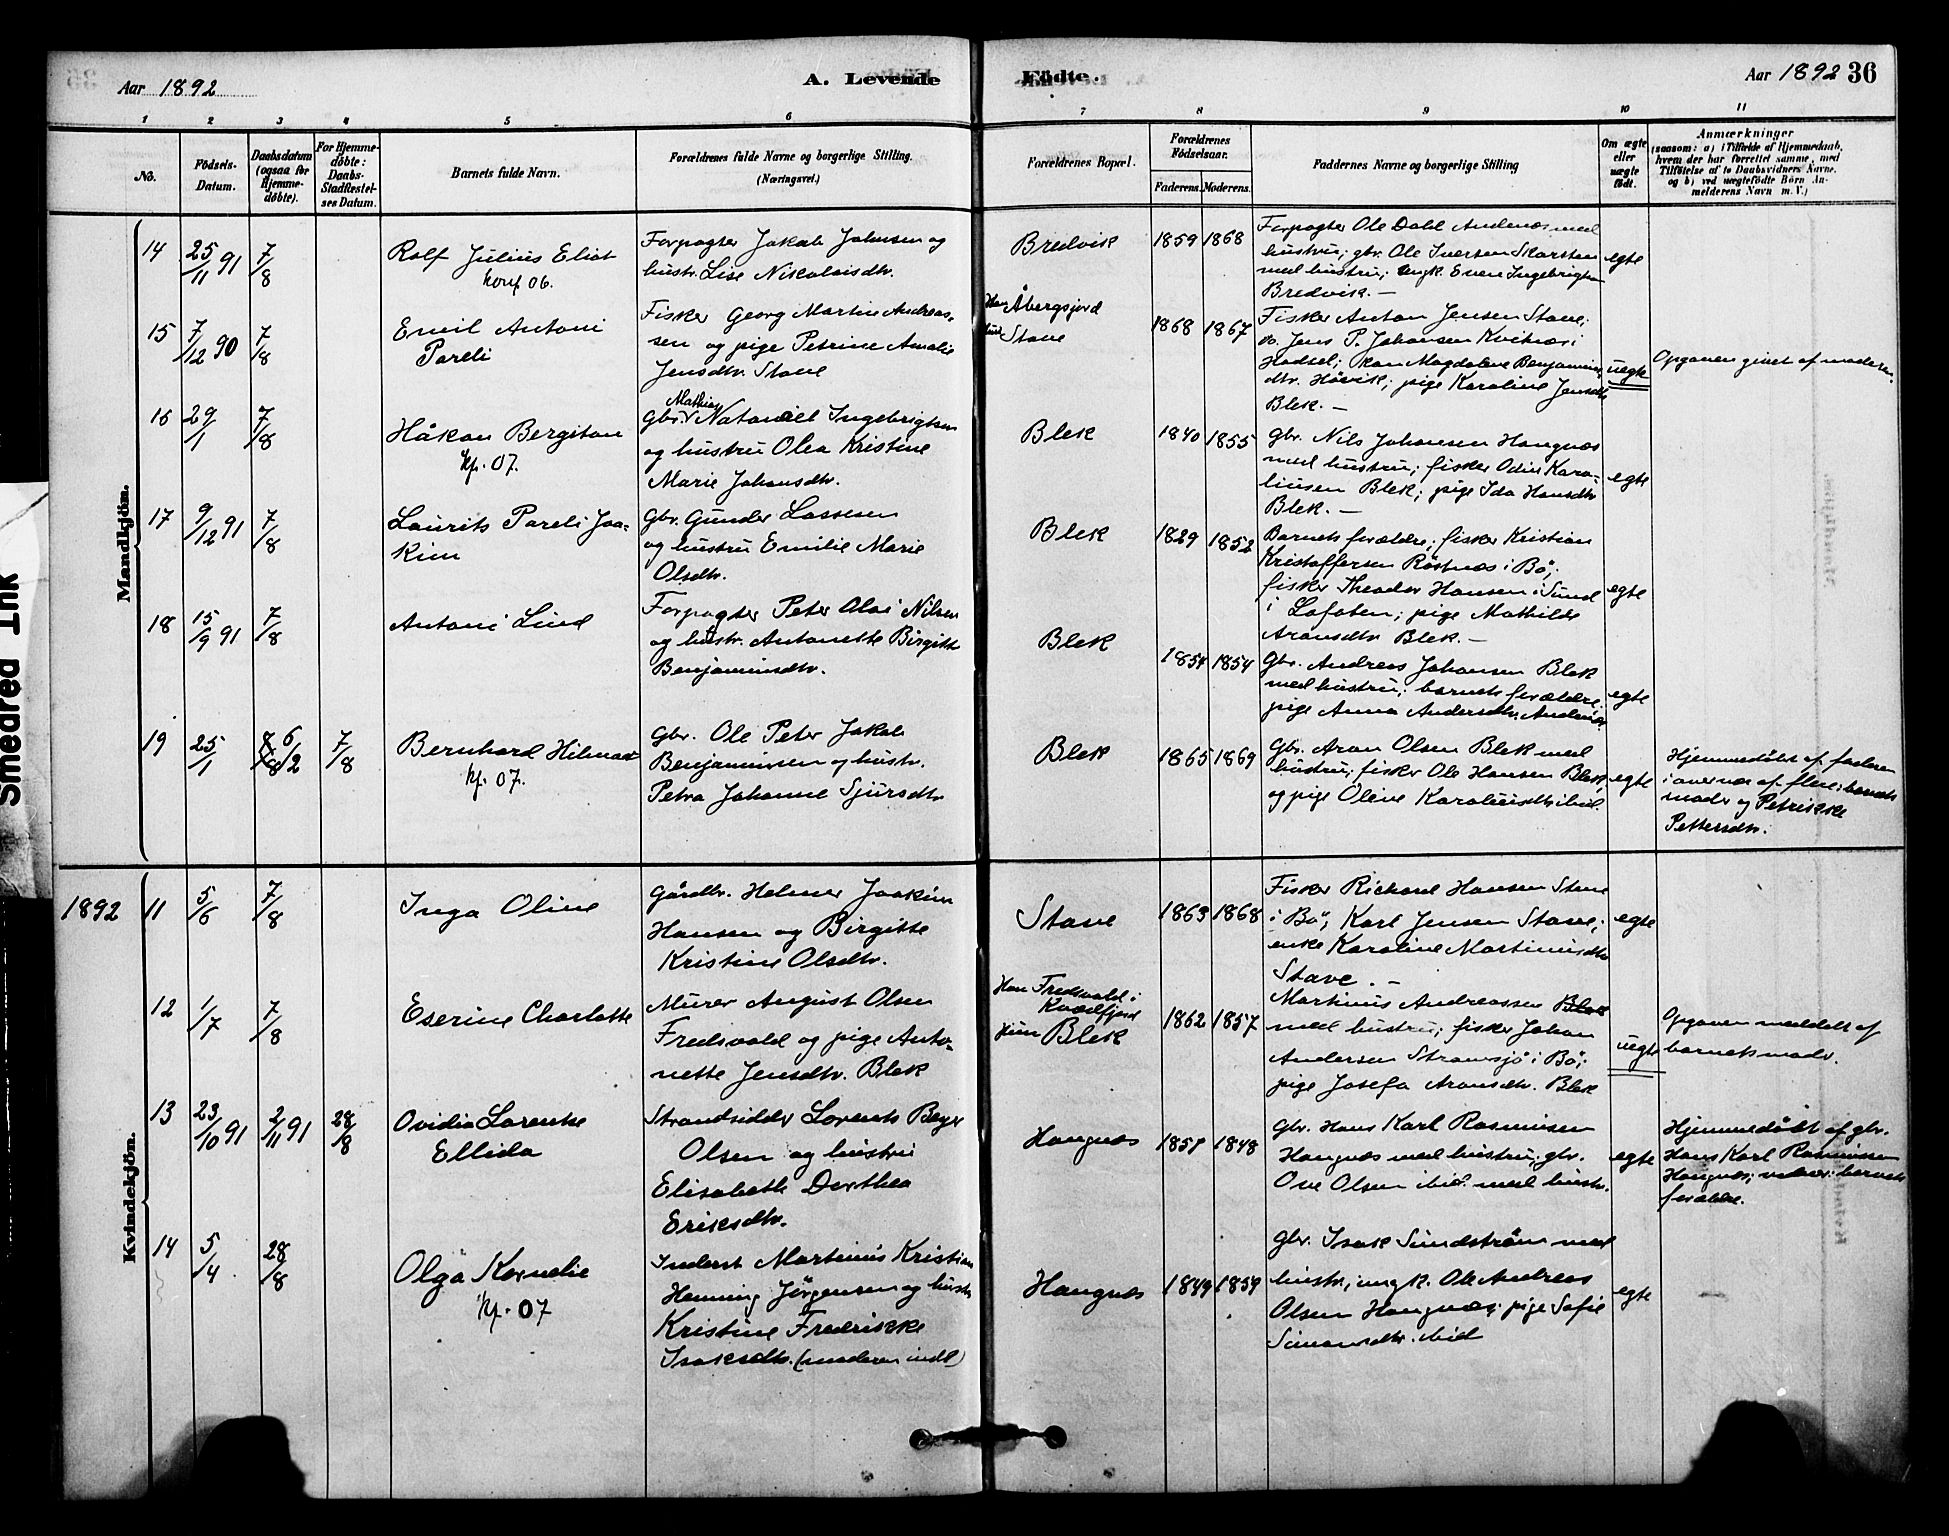 Aar 1892
A. Levende
Födte.
Aar 1892 36
1 2 3 4 5 6 7 8 9 10 11
No.
Födsels-
Datum.
Daabsdatum
(ogsaa for
Hjemme-
döbte).
For Hjemme-
døbte:
Daabs-
Stadfæstel-
ses Datum.
Barnets fulde Navn.
Forældrenes fulde Navne og borgerlige Stilling.
(Næringsvei.)
Forældrenes Bopæl.
Forældrenes
Fødselsaar.
Faderens. Moderens.
Faddernes Navne og borgerlige Stilling
Om ægte
eller
uægte
født.
Anmærkninger
(saasom: a) i Tilfælde af Hjemmedaab,
hvem der har forrettet samme, med
Tilföielse af to Daabsvidners Navne,
og b) ved uægtefödte Börn An-
melderens Navn m. V.)
Mandkjön.
14 25/11 91 7/8
Rolf Julius Eliot
konf 06.
Forpagter Jakob Johnsen og
hustr. Lise Nikolaisdtr.
Bredvik
1859 1868
Forpagter Ole Dahl Andenæs med
hustru; gbr. Ole Iversen Skarsten
med hustru; ungk. Even Ingebrigtsen
Bredvik. —
egte
15 7/12 90 7/8
Emil Antoni
Pareli
Fisker Georg Martin Andreas-
sen og pige Petrine Amalie
Jensdtr. Stave
Han Åbergsjord
Hun Stave
1868 1867
Fisker Anton Jensen Stave;
do. Jens P. Johansen Kvitnæs i
Hadsel; kon Magdalene Benjamins-
dtr. Høvik; pige Karoline Jensdtr
Blek. —
uegte
Opgaven givet af moderen.
16 29/1 7/8
Håkon Bergiton
kf. 07.
Mathias
Gbr. Nataniel Ingebrigtsen
og hustru Olea Kristine
Marie Johansdtr.
Blek
1840 1855
Gbr. Nils Johansen Haugnæs
med hustru; fisker Odin Karo-
liusen Blek; pige Ida Hansdtr
Blek. —
egte
17 9/12 91 7/8
Laurits Pareli Joa-
kim
Gbr. Gunder Lassesen
og hustru Emilie Marie
Olsdtr.
Blek
1829 1852
Barnets forældre; fisker Kristian
Kristoffersen Röstnæs i Bö;
fisker Theodor Hansen i Sund
i Lofoten; pige Mathilde
Aronsdtr Blek. —
egte
18 15/9 91 7/8
Antoni Lind
Forpagter Peter Olai Nilsen
og hustr. Antonette Birgitte
Benjaminsdtr.
Blek
1854 1854
Gbr. Andreas Johansen Blek
med hustru; barnets forældre;
pige Anna Andersdtr. Andenæs
egte
19 25/1 6/2 7/8
Bernhard Hilmar
kf. 07.
Gbr. Ole Peter Jakob
Benjaminsen og hustr.
Petra Johanne Sjursdtr
Blek
1865 1869
Gbr. Aron Olsen Blek med
hustru; fisker Ole Hansen Blek,
og pige Oline Karoliusdtr ibid.
egte
Hjemmedöbt af faderen
i overvær af flere: barnets
moder og Petrikke
Pettersdtr.
1892
Kvindekjön.
11 5/6 7/8
Inga Oline
Gårdbr. Helmer Joakim
Hansen og Birgitte
Kristine Olsdtr.
Stave
1863 1868
Fisker Richard Hansen Stave
i Bö; Karl Jensen Stave;
enke Karoline Martinusdtr
Stave. —
egte
12 1/7 7/8
Eserine Charlotte
Murer August Olsen
Fredsvald og pige Anto-
nette Jensdtr. Blek
Han Fredsvald i
Kvædfjord
Hun Blek
1862 1857
Martinus Andreassen Blek
med hustru; fisker Johan
Andersen Straumsjö i Bö;
pige Josefa Aronsdtr. Blek
uegte
Opgaven meddelt af
barnets moder.
13 23/10 91 2/11 91 28/8
Ovidia Lorentse
Ellida
Strandsidder Lorents Beyer
Olsen og hustru
Elisabeth Dorthea
Eriksdtr.
Haugnæs
1851 1848
Gbr. Hans Karl Rasmussen
Haugnæs med hustru; gbr.
Ove Olsen ibid. med hustr.
egte
Hjemmedöbt af gbr.
Hans Karl Rasmussen
Haugnæs; barnets
forældre.
14 5/4 28/8
Olga Kornelie
kf. 07
Inderst Martinus Kristian
Henning Jörgensen og hustr
Kristine Fredrikke
Isaksdtr. (moderen indl)
Haugnæs
1849 1859
Gbr. Isak Sundström med
hustr.; ungk. Ole Andreas
Olsen Haugnæs; pige Sofie
Simonsdtr. ibid
egte
Smedred Ink